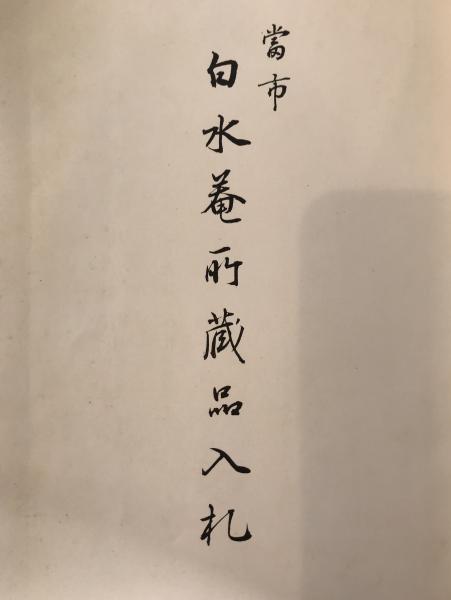 當市
白水菴所蔵品入札